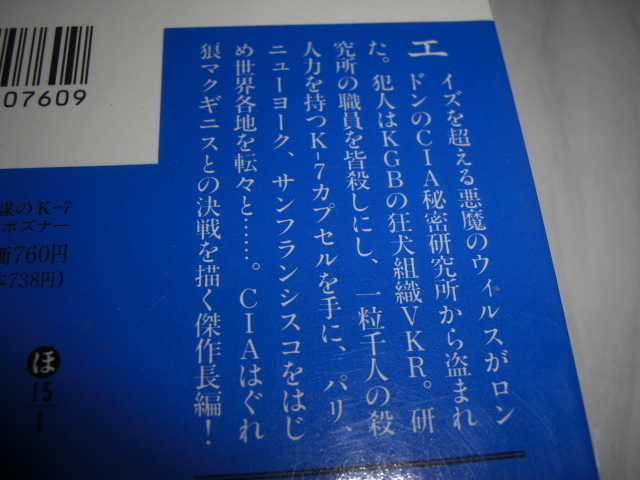 エイズを超える悪魔のウィルスがロン
ドンのCIA秘密研究所から盗まれ
た。犯人はKGBの狂犬組織VKR。研
究所の職員を皆殺しにし、一粒千人の殺
人力を持つK-7カプセルを手に、パリ、
ニューヨーク、サンフランシスコをはじ
め世界各地を転々と……。CIAはぐれ
狼マクギニスとの決戦を描く傑作長編！
07609
謀のK-7
ポズナー
価760円
738円)
ほ
15
1